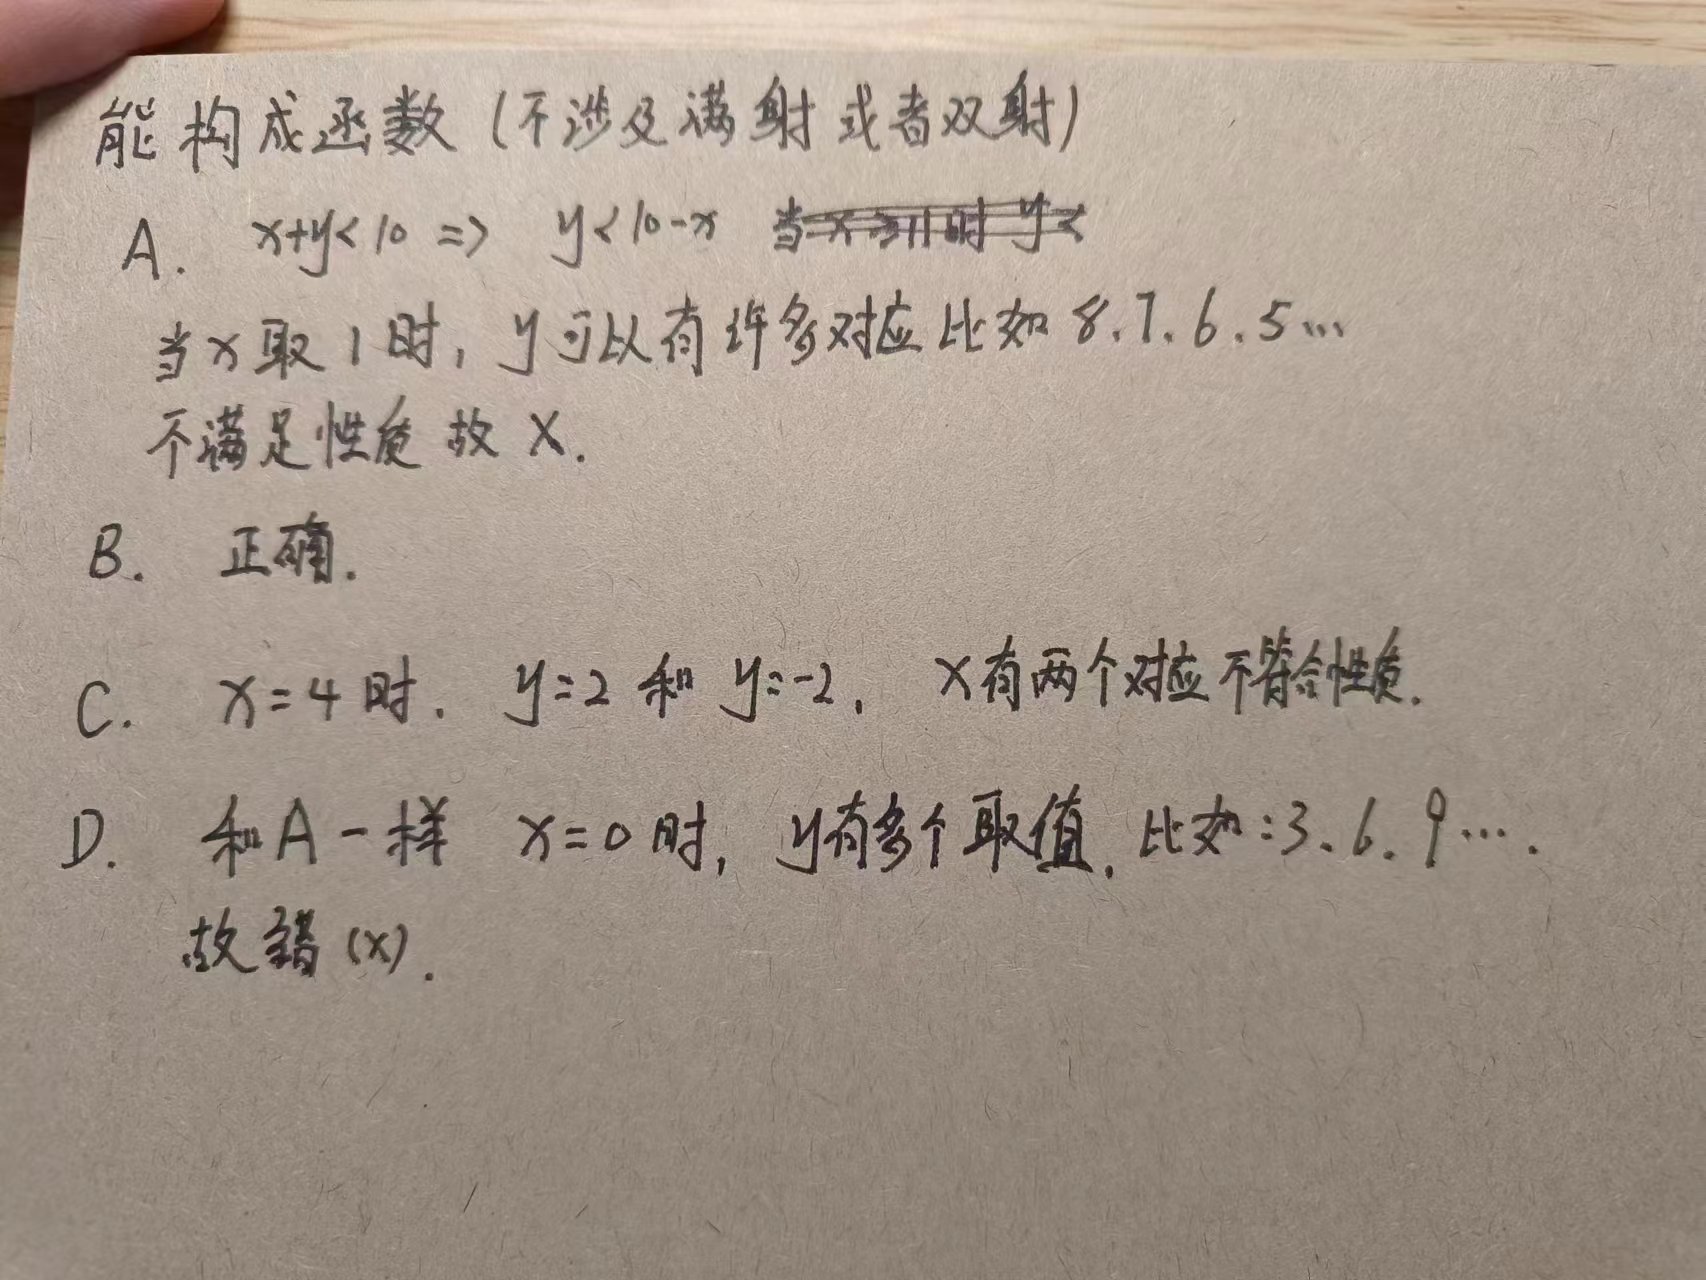 能构成函数(不涉及满射或者双射)
A. x+y<10 => y<10-x
当x取1时,y可以有许多对应比如8.7.6.5...
不满足性质故X.
B. 正确.
C. x=4时. y=2和y=-2. X有两个对应不符合性质.
D. 和A一样 x=0时,y有多个取值.比如:3.6.9....
故错(x).